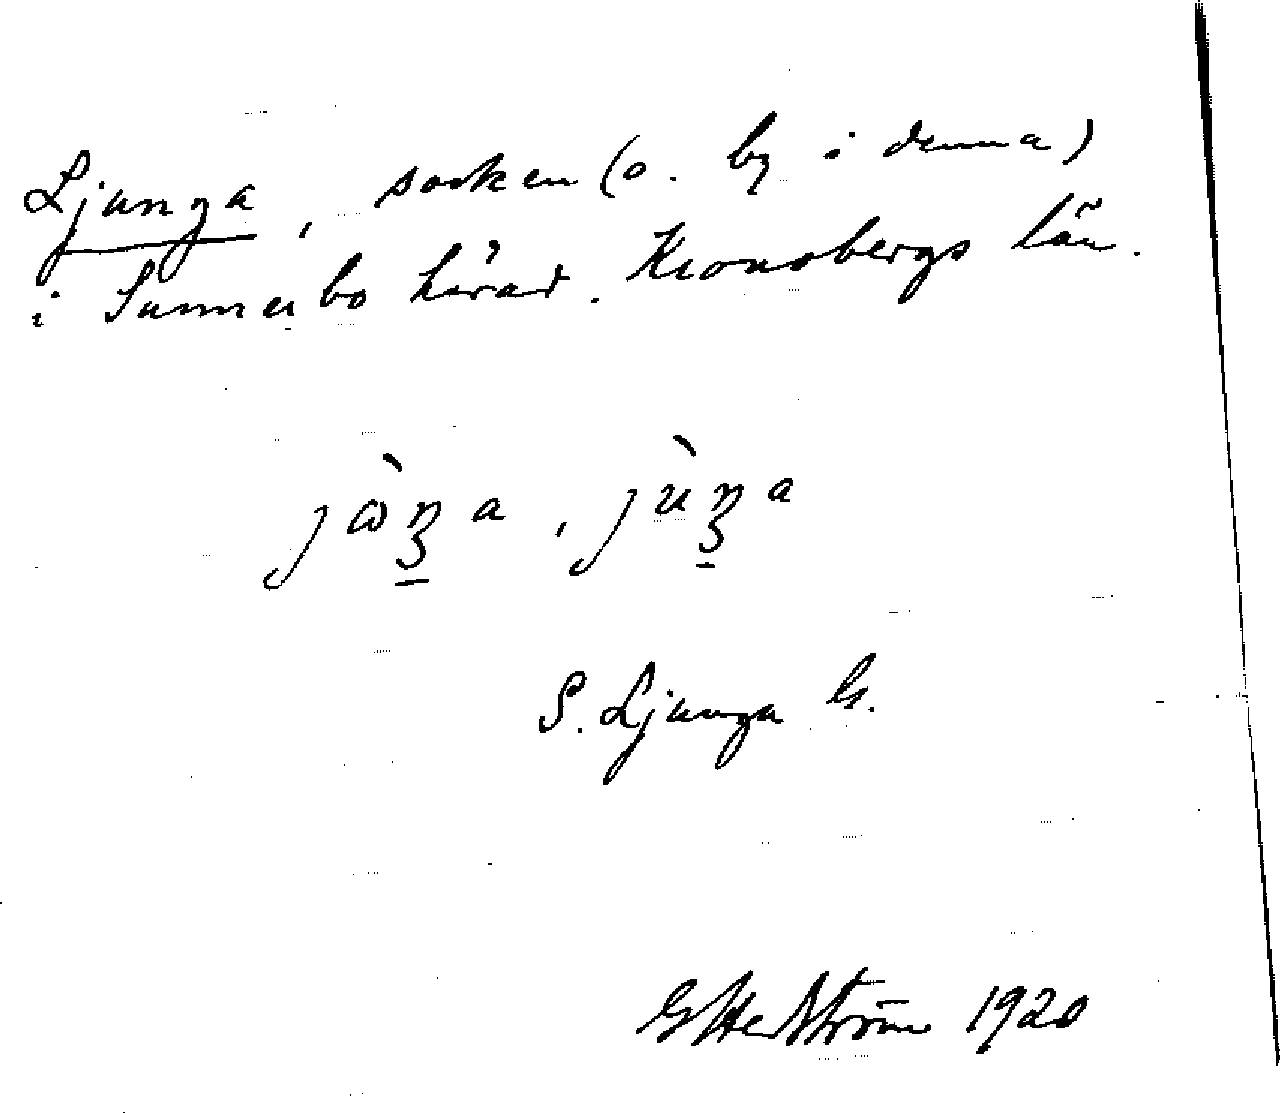 Ljunga, socken (o. by i denna)
i Sunnerbo härad. Kronobergs län.
jὼŋa, jùŋa
S. Ljunga G.
G Hedström 1920